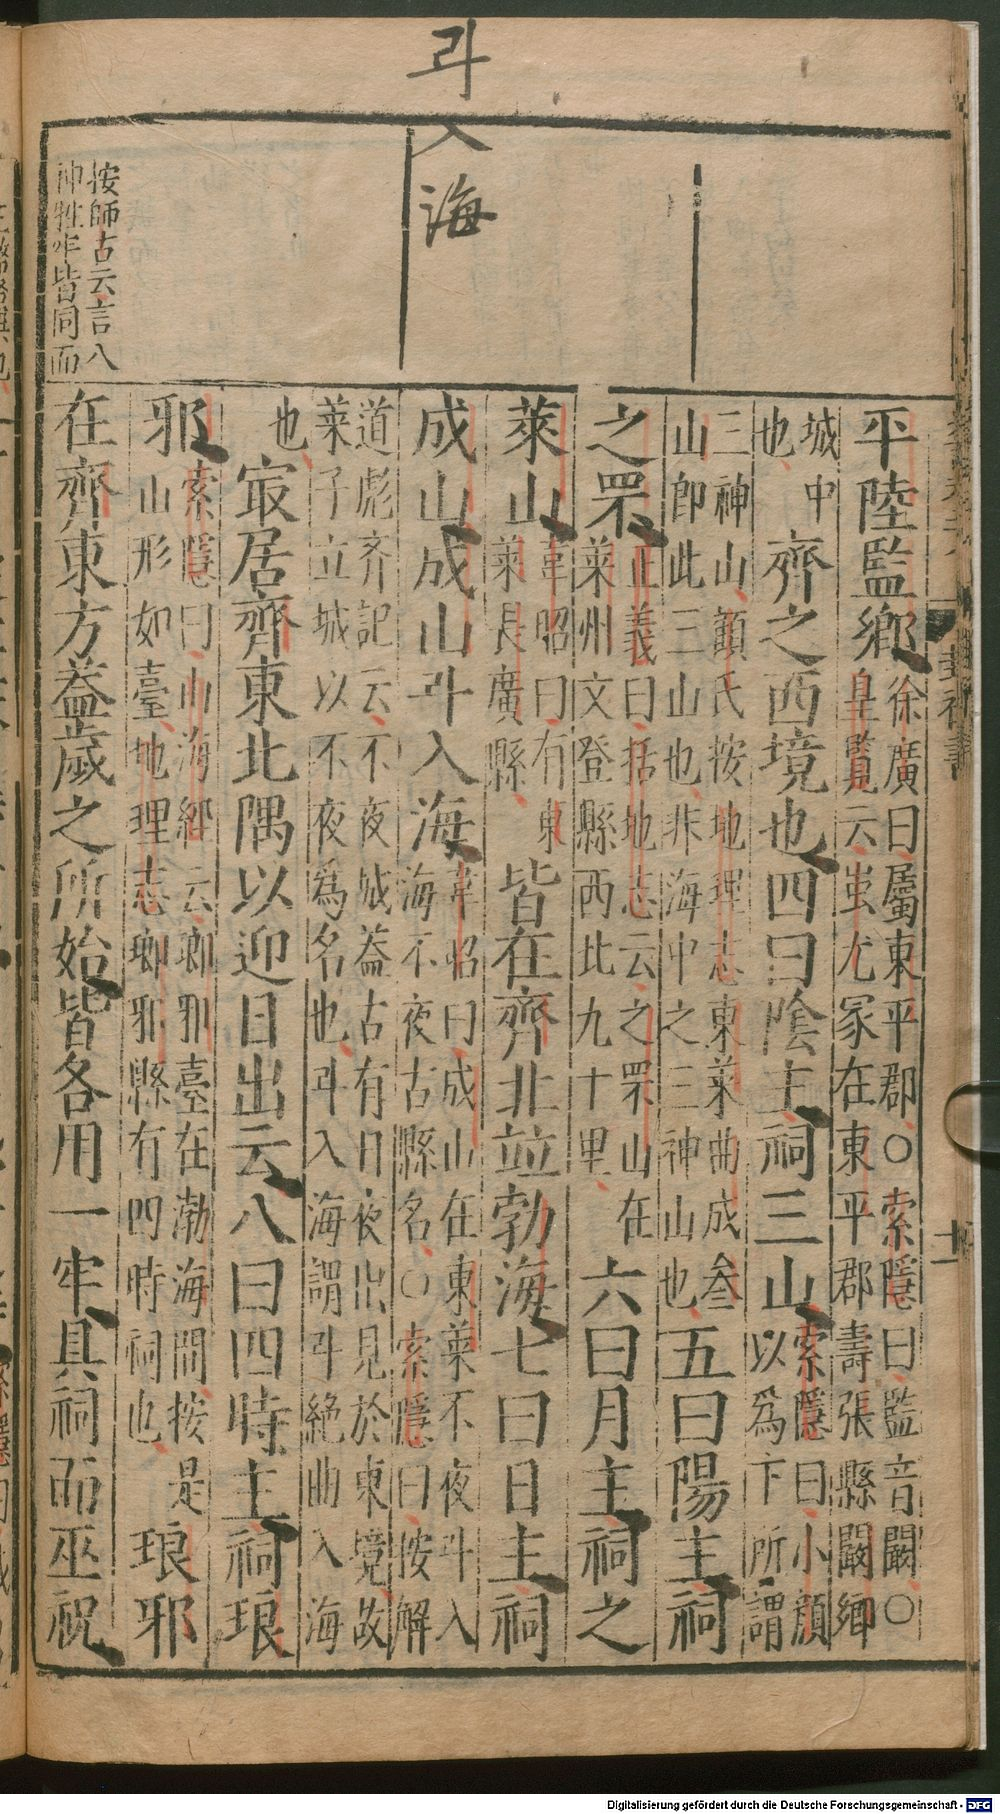 斗入海
平陸監鄉徐廣曰屬東平郡、○索隱曰監音闞○
皇覽云蚩尤冢在東平郡壽張縣闞鄉
城中
也、齊之西境也四曰陰主祠三山索隱曰小顏
以爲下所謂
三神山、顧氏按地理志東萊曲成叄
山即此三山也非海中之三神山也、五曰陽主祠
之罘正義曰括地志云之罘山在
萊州文登縣西北九十里、六曰月主祠之
萊山韋昭曰有東
萊長廣縣、皆在齊北竝勃海七曰日主祠
成山成山斗入海韋昭曰成山在東萊不夜斗入
海不夜古縣名、○索隱曰按解
道彪齐記云、不夜城蓋古有日夜出見於東境、故
萊子立城以不夜爲名也、斗入海謂斗絕曲入海
也、㝡居齊東北隅以迎日出云八曰四時主祠琅
邪索隱曰山海經云瑯邪臺在渤海間按是
山形如臺、地理志瑯邪縣有四時祠也、琅邪
在齊東方蓋歲之所始皆各用一牢具祠而巫祝
按師古云言八
神牲牢皆同而
Digitalisierung gefördert durch die Deutsche Forschungsgemeinschaft - DFG